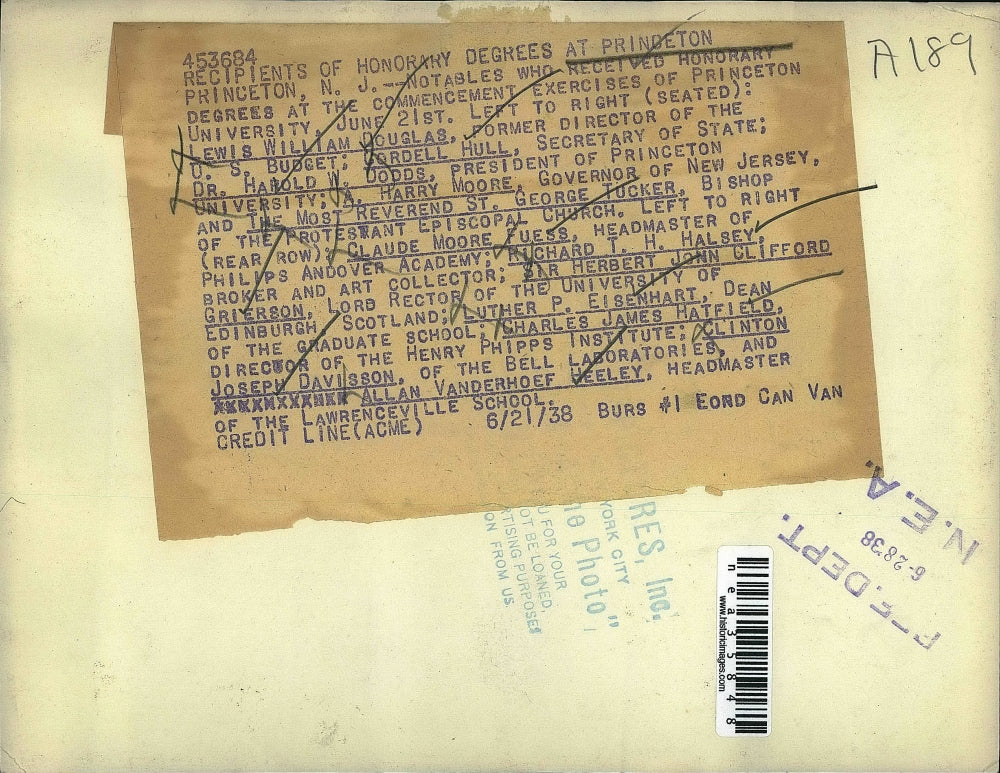 453684
RECIPIENTS OF HONORARY DEGREES AT PRINCETON
PRINCETON, N. J.--NOTABLES WHO RECEIVED HONORARY
DEGREES AT THE COMMENCEMENT EXERCISES OF PRINCETON
UNIVERSITY, JUNE 21ST. LEFT TO RIGHT (SEATED):
LEWIS WILLIAM DOUGLAS, FORMER DIRECTOR OF THE
U. S. BUDGET; CORDELL HULL, SECRETARY OF STATE;
DR. HAROLD W. DODDS, PRESIDENT OF PRINCETON
UNIVERSITY; A. HARRY MOORE, GOVERNOR OF NEW JERSEY,
AND THE MOST REVEREND ST. GEORGE TUCKER, BISHOP
OF THE PROTESTANT EPISCOPAL CHURCH. LEFT TO RIGHT
(REAR ROW): CLAUDE MOORE FUESS, HEADMASTER OF
PHILIPS ANDOVER ACADEMY; RICHARD T. H. HALSEY,
BROKER AND ART COLLECTOR; SIR HERBERT JOHN CLIFFORD
GRIERSON, LORD RECTOR OF THE UNIVERSITY OF
EDINBURGH, SCOTLAND; LUTHER P. EISENHART, DEAN
OF THE GRADUATE SCHOOL; CHARLES JAMES HATFIELD,
DIRECTOR OF THE HENRY PHIPPS INSTITUTE; CLINTON
JOSEPH DAVISSON, OF THE BELL LABORATORIES, AND
XXXXXXXXXXX ALLAN VANDERHOEF HEELEY, HEADMASTER
OF THE LAWRENCEVILLE SCHOOL.
CREDIT LINE(ACME) 6/21/38 BURS #1 EORD CAN VAN
A189
N.E.A.
6-28 38
DEPT.
RES, Inc.
YORK CITY
Photo"
FOR YOUR
OT BE LOANED,
RTISING PURPOSES
ON FROM US
nea35848
www.historicimages.com